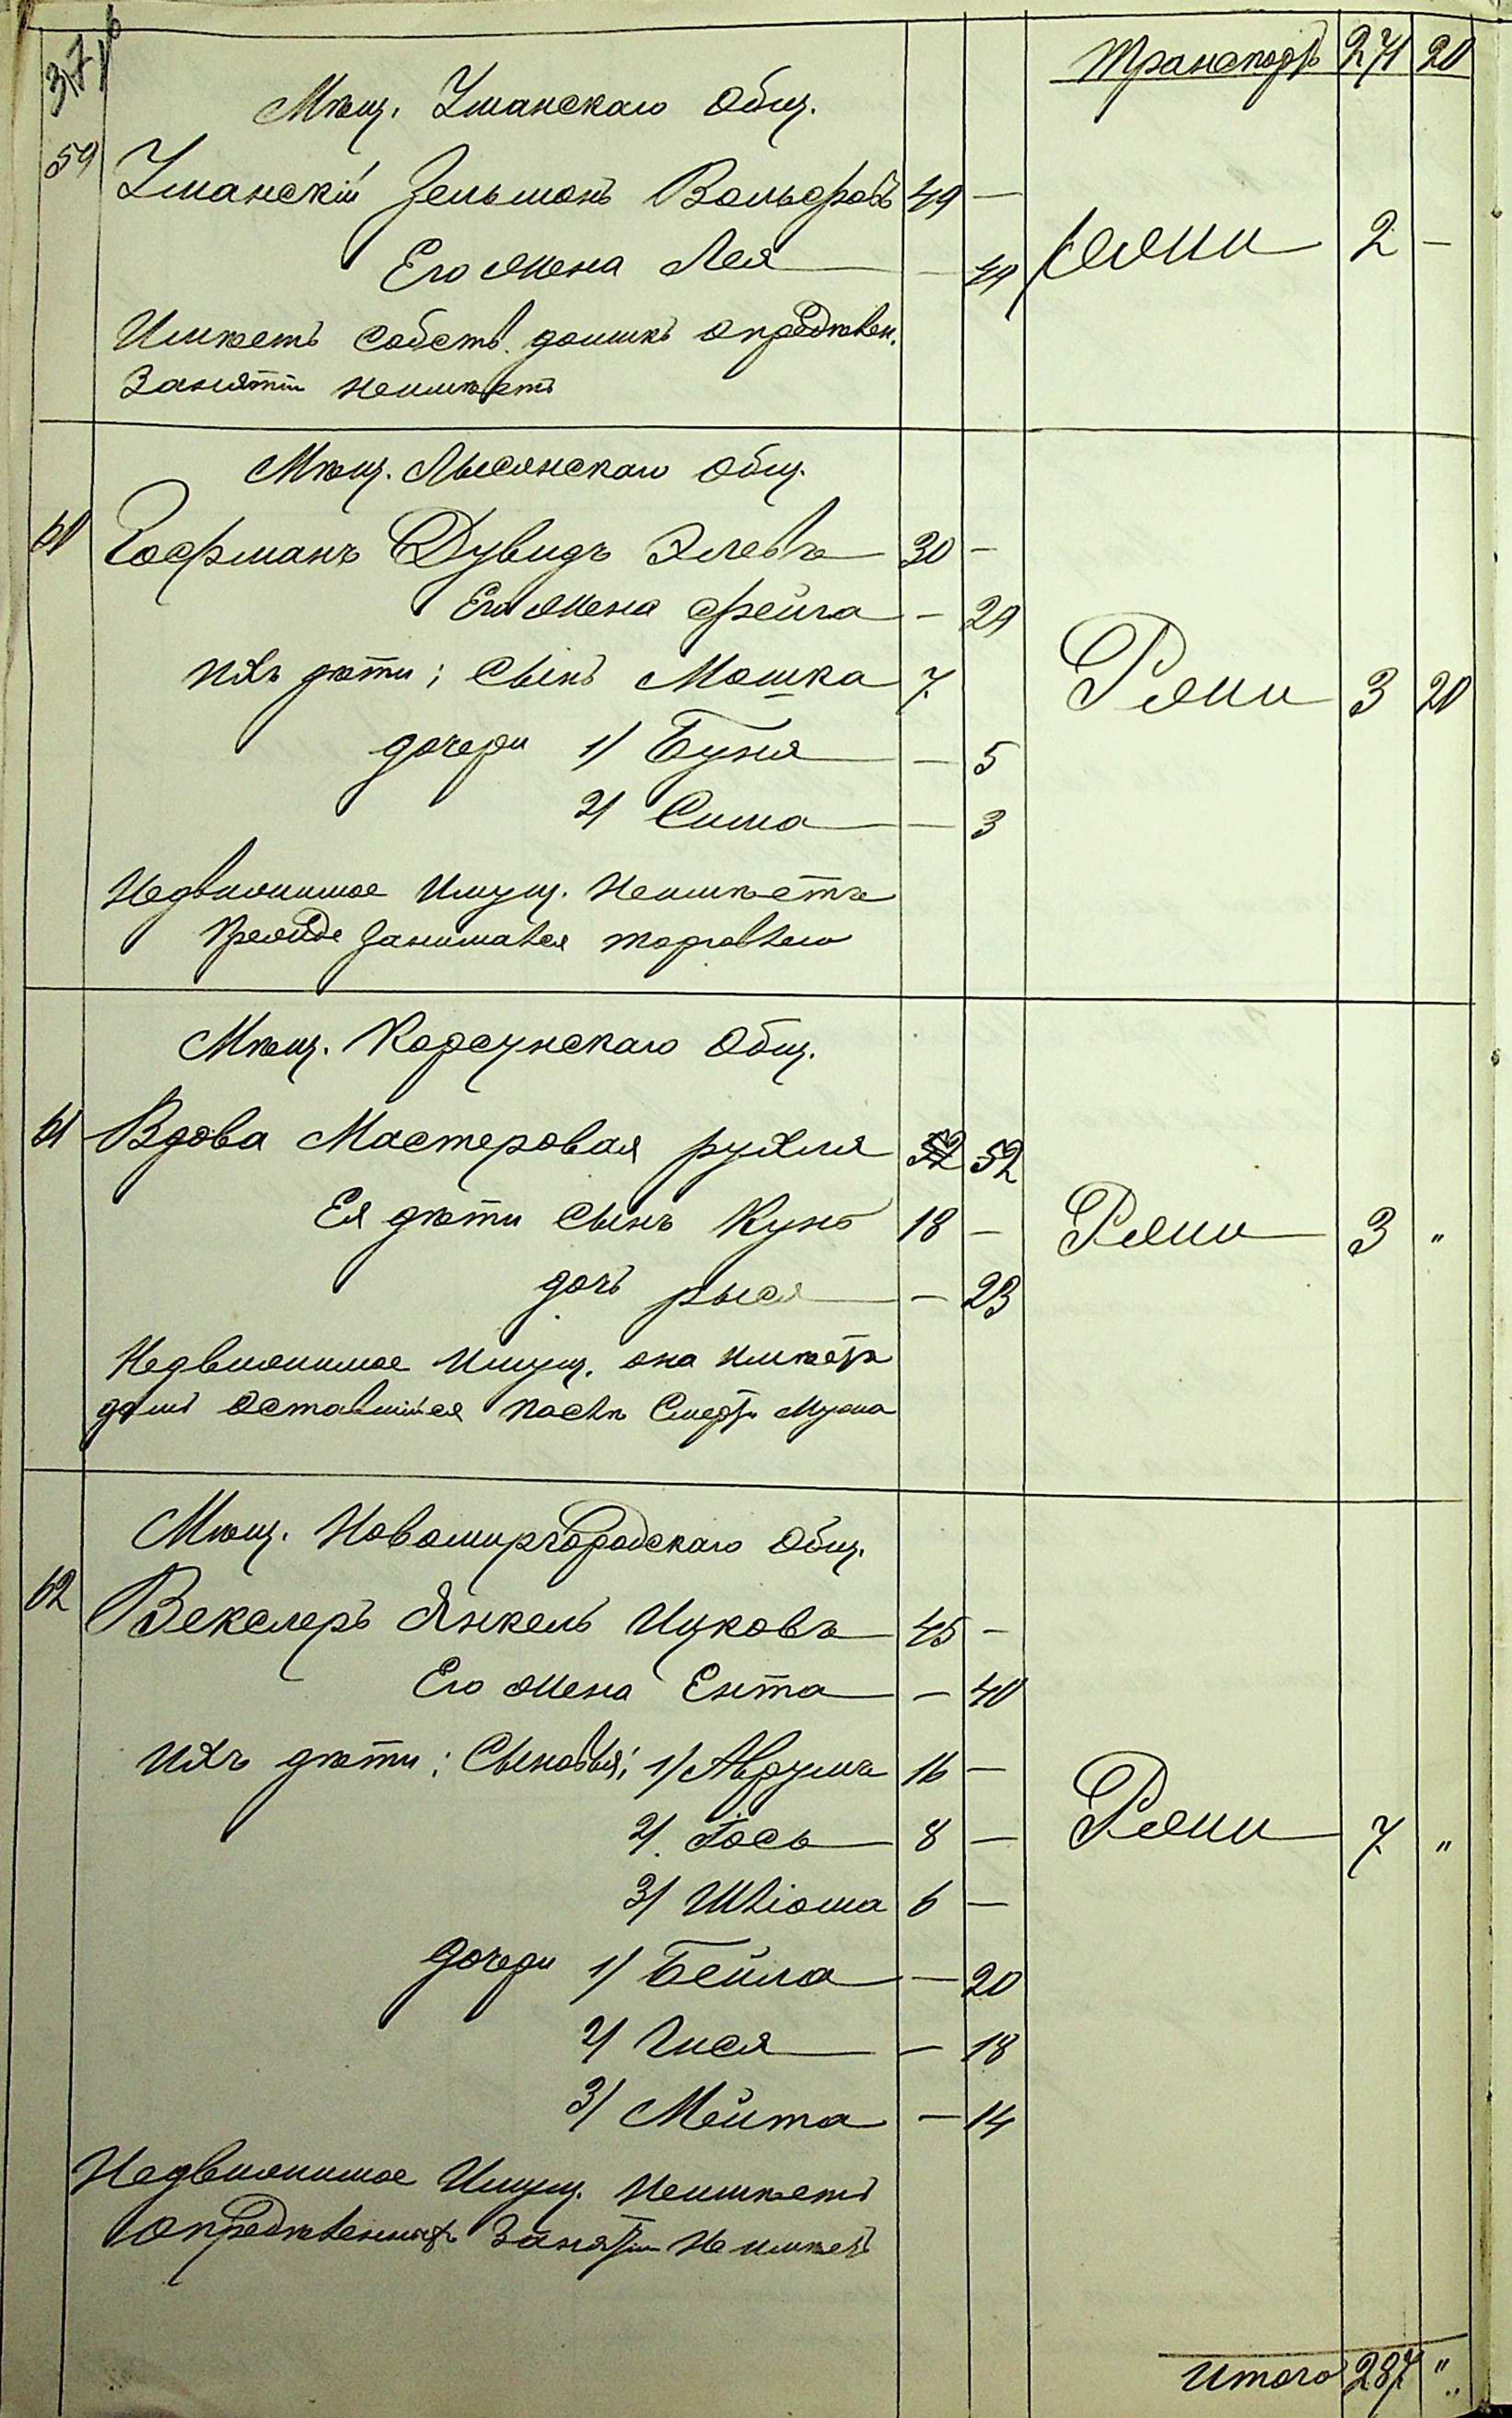 Транспортъ 271 20
Мѣщ. Уманскаго Общ.
59 Уманскій Зельманъ Вольфовъ 49 —
Его жена Лея — 49 2 —
Имѣетъ собств. домикъ опредѣлен.
занятій неимѣетъ
Мѣщ. Лысянскаго Общ.
60 Гофманъ Дувидъ Элевъ 30 —
Его жена Фейга — 29
Ихъ дѣти; сынъ Мошка 7 3 20
дочери 1/ Буня — 5
2/ Сима — 3
Недвижимое Имущ. Неимѣетъ
Прежде занимался торговлею
Мѣщ. Корсунскаго Общ.
61 Вдова Мастеровая рухля 52 52
Ея дѣти сынъ Кунъ 18 — 3 "
дочь рыся — 23
Недвижимое Имущ. она имѣетъ
домъ оставшійся послѣ Смерти Мужа
Мѣщ. Новомиргородскаго Общ.
62 Векслеръ Янкель Ицковъ 45 —
Его жена Ента — 40
Ихъ дѣти: Сыновья; 1/ Аврумъ 16 —
2/ Іось 8 — 7 "
3/ Шліома 6 —
Дочери 1/ Бейла — 20
2/ Гися — 18
3/ Мейта — 14
Недвижимое Имущ. Неимѣетъ
опредѣленныхъ занятій Не имѣетъ
Итого 287 "